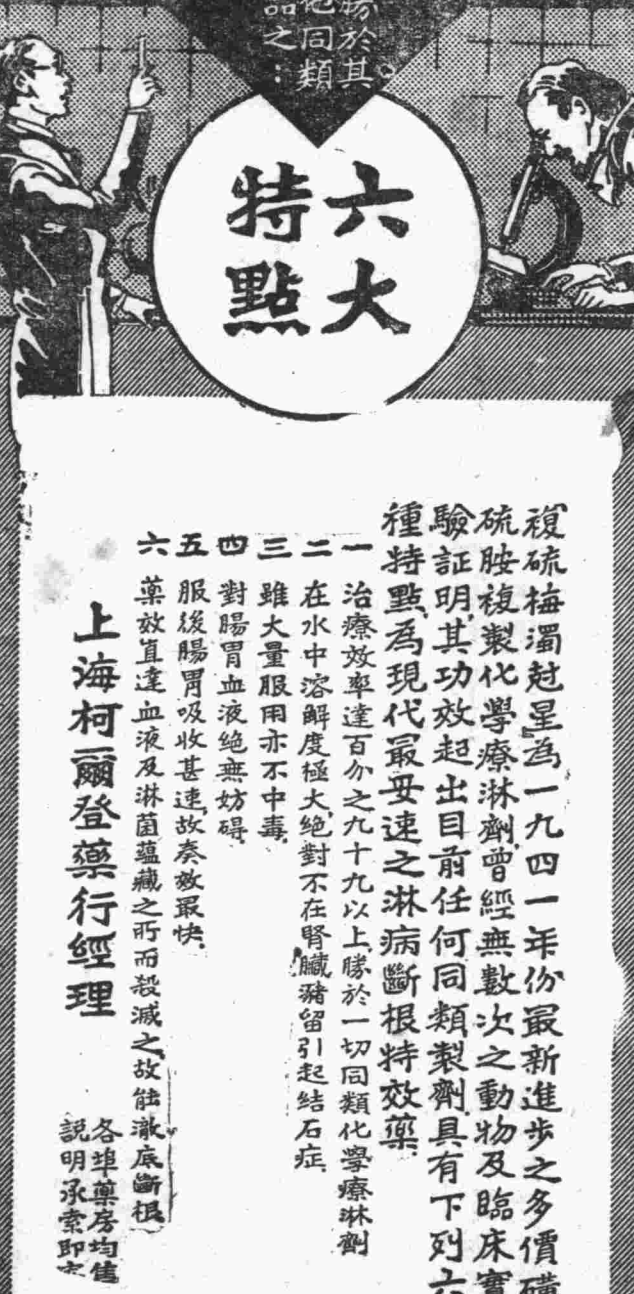 勝於其
他同類
品之：
六大
特點
複硫梅濁尅星為一九四一年份最新進步之多價磺
硫胺複製化學療淋劑，曾經無數次之動物及臨床實
驗証明，其功效起出目前任何同類製劑，具有下列六
種特點，為現代最妥速之淋病斷根特效藥．
一 治療效率達百分之九十九以上，勝於一切同類化學療淋劑
二 在水中溶解度極大，絕對不在腎臟瀦留引起結石症．
三 雖大量服用亦不中毒．
四 對腸胃血液絕無妨碍．
五 服後腸胃吸收甚速，故奏效最快．
六 藥效直達血液及淋菌蘊藏之所而殺滅之，故能澈底斷根
上海柯爾登藥行經理
各埠藥房均售
説明承索即